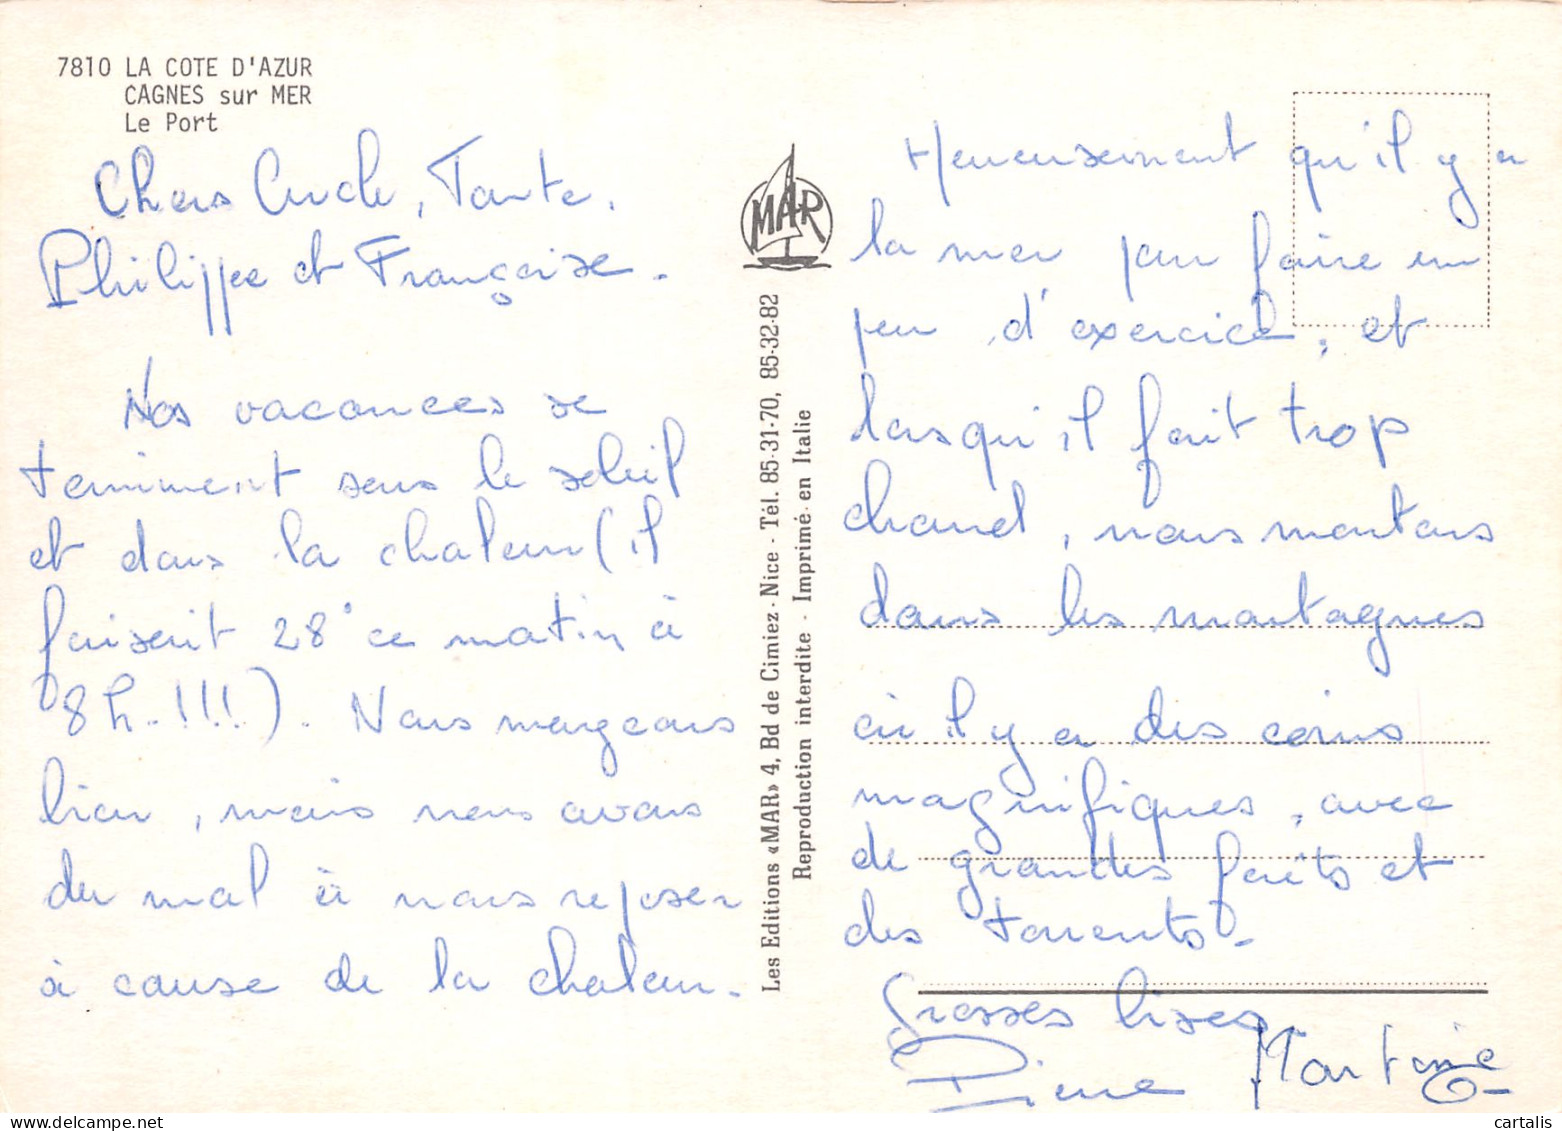 7810 LA COTE D'AZUR
CAGNES sur MER
Le Port
Chers Oncle, Tante,
Philippe et Françoise.
Nos vacances se
terminent sous le soleil
et dans la chaleur (il
faisait 28° ce matin à
8h.!!!). Nous mangeons
bien, mais nous avons
du mal à nous reposer
à cause de la chaleur.
MAR
Les Editions «MAR» 4, Bd de Cimiez - Nice - Tél. 85-31-70, 85-32-82
Reproduction interdite - Imprimé en Italie
Heureusement qu'il y a
la mer pour faire un
peu d'exercice, et
lorsqu'il fait trop
chaud, nous montons
dans les montagnes
où il y a des coins
magnifiques, avec
de grandes forêts et
des torrents.
Grosses bises
Pierre Martine
cartalis